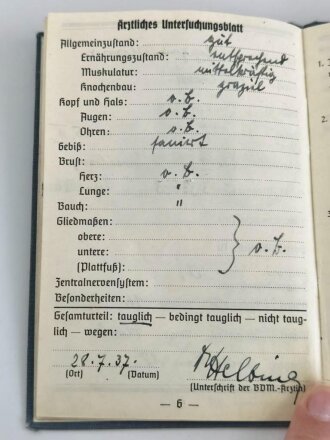 Ärztliches Untersuchungsblatt
Allgemeinzustand: gut
Ernährungszustand: entsprechend
Muskulatur: mittelkräftig
Knochenbau: grazil
Kopf und Hals: o. B.
Augen: o. B.
Ohren: o. B.
Gebiß: saniert
Brust:
Herz: o. B.
Lunge: "
Bauch: "
Gliedmaßen:
obere:
untere: o. B.
(Plattfuß):
Zentralnervensystem:
Besonderheiten:
Gesamturteil: tauglich — bedingt tauglich — nicht taug-
lich — wegen:
28.7.37.
(Ort) (Datum)
Helbing
(Unterschrift der BDM.-Ärztin)
— 6 —